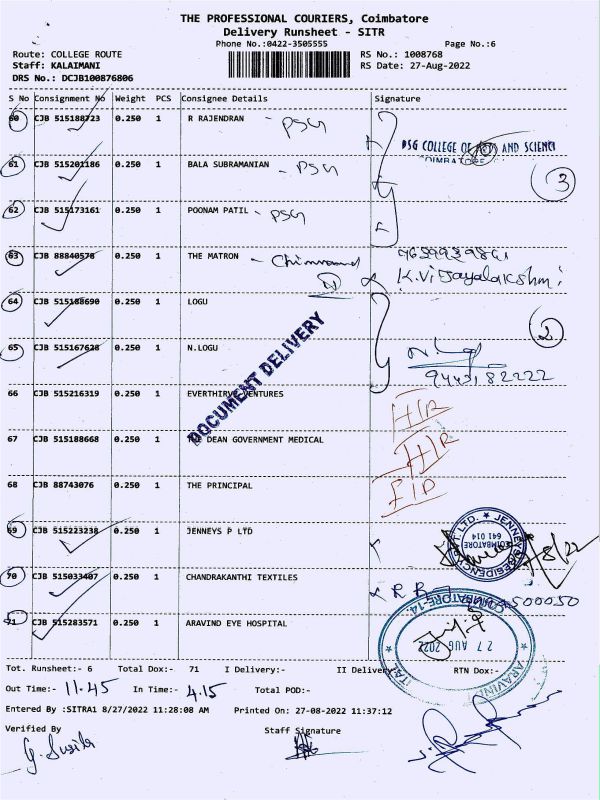 THE PROFESSIONAL COURIERS, Coimbatore
Delivery Runsheet - SITR
Phone No.:0422-3505555 Page No.:6
Route: COLLEGE ROUTE RS No.: 1008768
Staff: KALAIMANI RS Date: 27-Aug-2022
DRS No.: DCJB100876806
S No Consignment No Weight PCS Consignee Details Signature
60 CJB 515188723 0.250 1 R RAJENDRAN - PSG
PSG COLLEGE OF ARTS AND SCIENCE
COIMBATORE
61 CJB 515201186 0.250 1 BALA SUBRAMANIAN - PSG
3
62 CJB 515173161 0.250 1 POONAM PATIL - PSG
63 CJB 88840578 0.250 1 THE MATRON -
K.Vijayalakshmi
64 CJB 515188690 0.250 1 LOGU
2
65 CJB 515167628 0.250 1 N.LOGU
9443182222
DOCUMENT DELIVERY
66 CJB 515216319 0.250 1 EVERTHIRVE VENTURES
67 CJB 515188668 0.250 1 THE DEAN GOVERNMENT MEDICAL
68 CJB 88743076 0.250 1 THE PRINCIPAL
69 CJB 515223238 0.250 1 JENNEYS P LTD
JENNEYS RESIDENCY LTD.
COIMBATORE
641 014
70 CJB 515033407 0.250 1 CHANDRAKANTHI TEXTILES
71 CJB 515283571 0.250 1 ARAVIND EYE HOSPITAL
COIMBATORE-14.
27 AUG 2022
Tot. Runsheet:- 6 Total Dox:- 71 I Delivery:- II Delivery:- RTN Dox:-
Out Time:- 11.45 In Time:- 4.15 Total POD:-
Entered By :SITRA1 8/27/2022 11:28:08 AM Printed On: 27-08-2022 11:37:12
Verified By Staff Signature